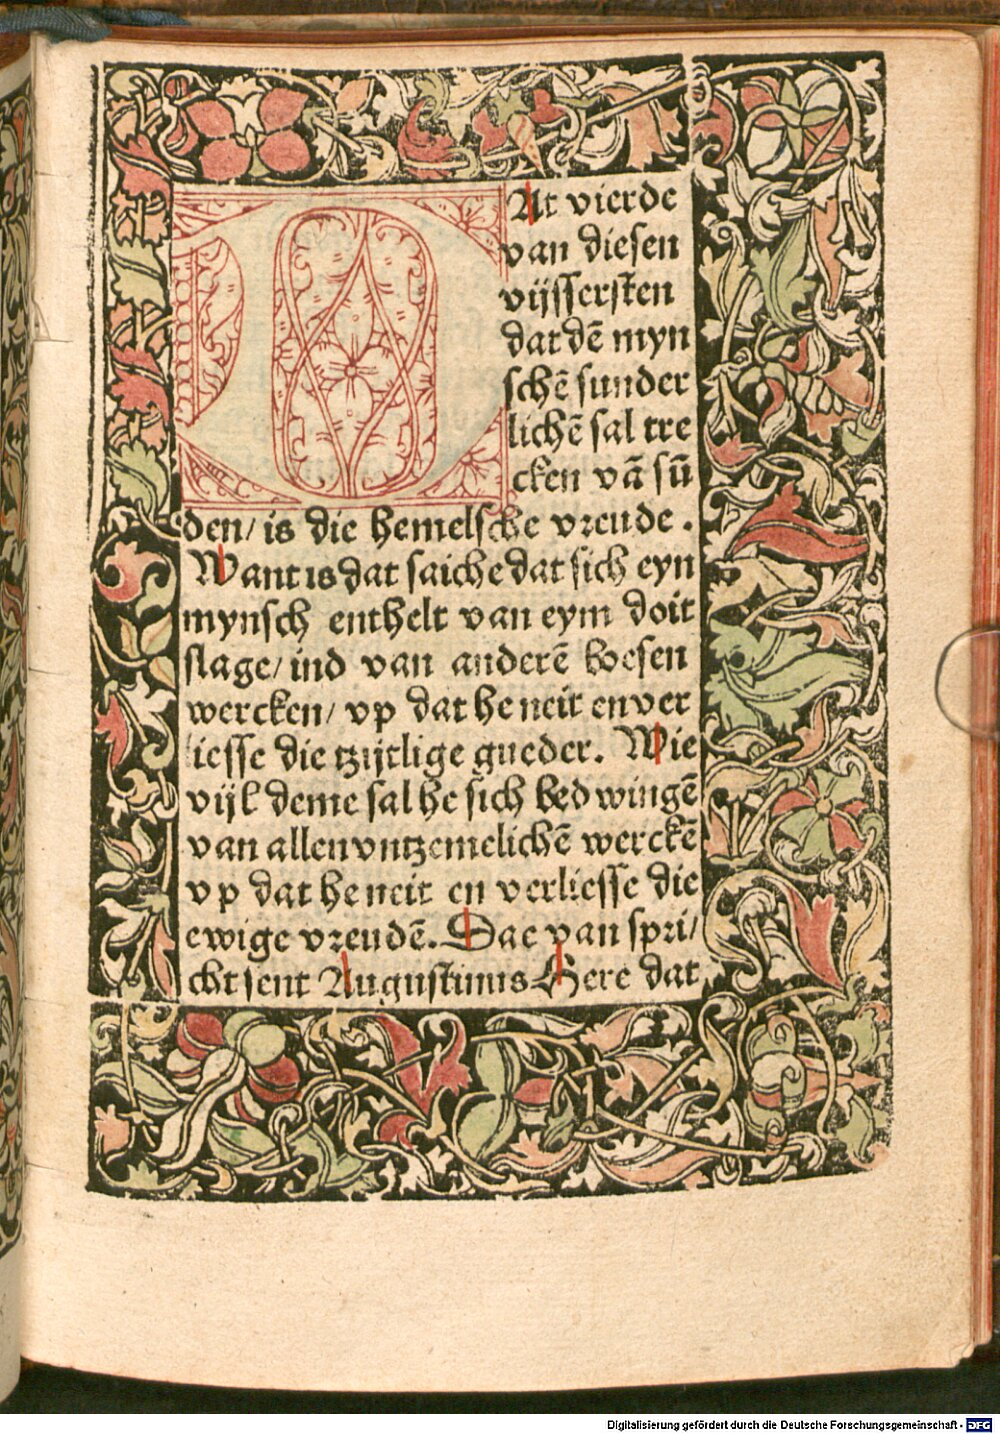 DAt vierde
van diesen
vijſſerſten
dat dē myn
ſchē ſunder
lichē ſal tre
cken vā ſū
den/ is die hemelſche vreude.
Want is dat ſaiche dat ſich eyn
mynſch enthelt van eym doit
ſlage/ ind van anderē boeſen
wercken/ vp dat he neit en ver
lieſſe die tzijtlige gueder. Wie
vijl deme ſal he ſich bedwingē
van allen vntzemelichē werckē
vp dat he neit en verlieſſe die
ewige vreudē. Dae van ſpri/
cht ſent Auguſtinus Here dat
Digitalisierung gefördert durch die Deutsche Forschungsgemeinschaft - DFG